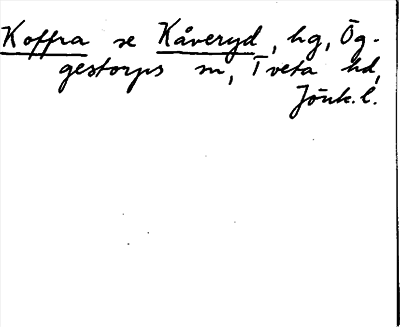 Koffra se Kåveryd, hg, Ög-
gestorps sn, Tveta hd,
Jönk. l.